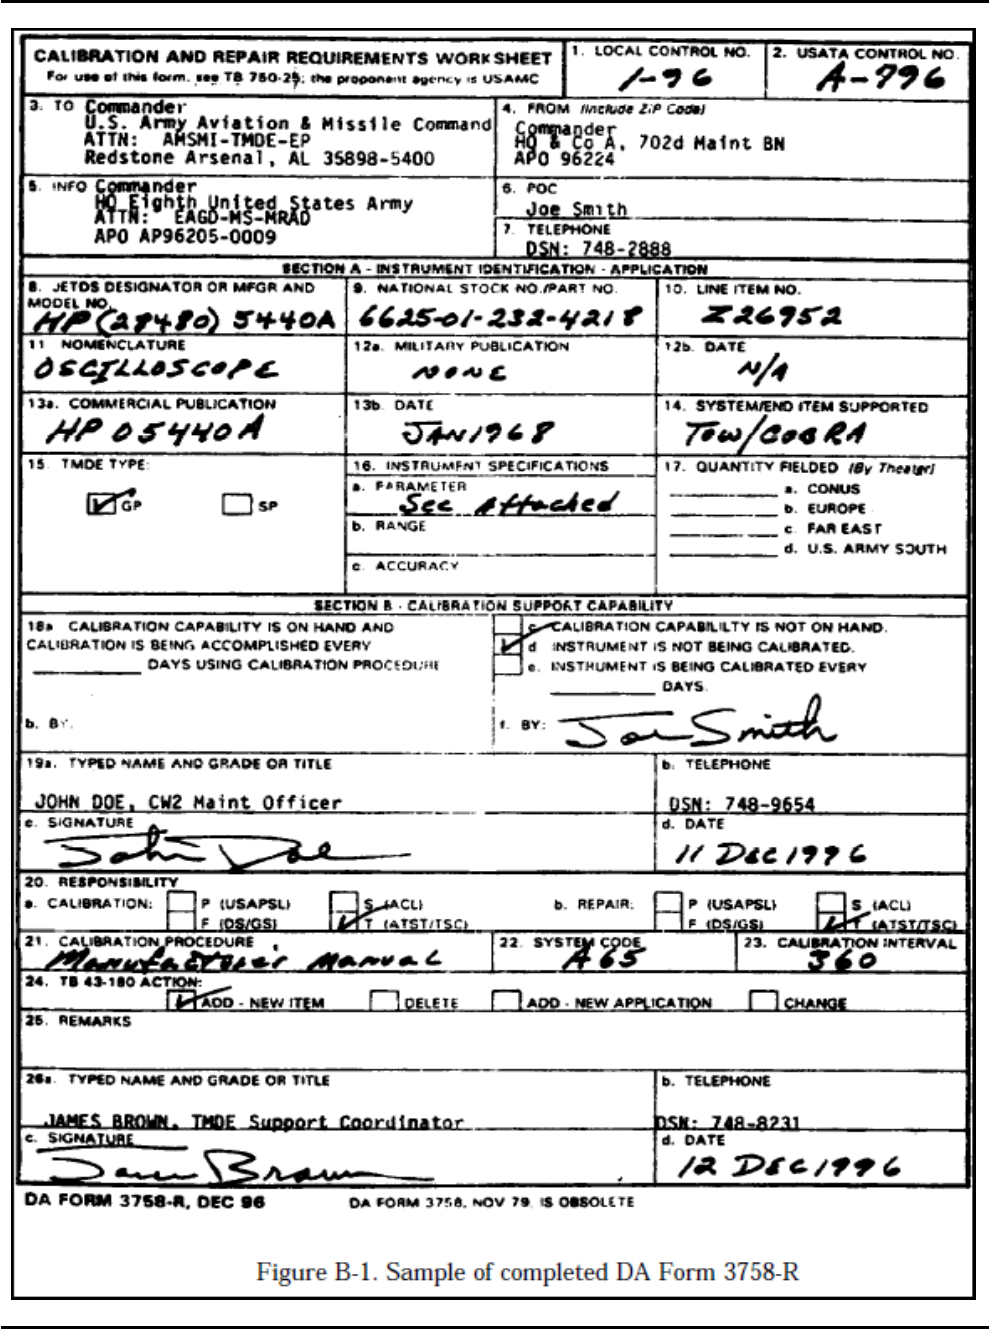 CALIBRATION AND REPAIR REQUIREMENTS WORK SHEET
For use of this form, see TB 750-25; the proponent agency is USAMC
1. LOCAL CONTROL NO.
1-96
2. USATA CONTROL NO.
A-796
3. TO Commander
U.S. Army Aviation & Missile Command
ATTN: AMSMI-TMDE-EP
Redstone Arsenal, AL 35898-5400
4. FROM (Include ZIP Code)
Commander
HQ & Co A, 702d Maint BN
APO 96224
5. INFO Commander
HQ Eighth United States Army
ATTN: EAGD-MS-MRAD
APO AP96205-0009
6. POC
Joe Smith
7. TELEPHONE
DSN: 748-2888
SECTION A - INSTRUMENT IDENTIFICATION - APPLICATION
8. JETDS DESIGNATOR OR MFGR AND
MODEL NO.
HP (28480) 5440A
9. NATIONAL STOCK NO./PART NO.
6625-01-232-4218
10. LINE ITEM NO.
Z26952
11 NOMENCLATURE
OSCILLOSCOPE
12a. MILITARY PUBLICATION
NONE
12b. DATE
N/A
13a. COMMERCIAL PUBLICATION
HP 05440A
13b. DATE
JAN 1968
14. SYSTEM/END ITEM SUPPORTED
TOW/COBRA
15. TMDE TYPE:
GP
SP
16. INSTRUMENT SPECIFICATIONS
a. PARAMETER
See Attached
b. RANGE
c. ACCURACY
17. QUANTITY FIELDED (By Theater)
a. CONUS
b. EUROPE
c. FAR EAST
d. U.S. ARMY SOUTH
SECTION B - CALIBRATION SUPPORT CAPABILITY
18a CALIBRATION CAPABILITY IS ON HAND AND
CALIBRATION IS BEING ACCOMPLISHED EVERY
DAYS USING CALIBRATION PROCEDURE
b. BY:
c. CALIBRATION CAPABILILTY IS NOT ON HAND.
d INSTRUMENT IS NOT BEING CALIBRATED.
e. INSTRUMENT IS BEING CALIBRATED EVERY
DAYS.
f. BY: Joe Smith
19a. TYPED NAME AND GRADE OR TITLE
JOHN DOE, CW2 Maint Officer
b. TELEPHONE
DSN: 748-9654
c. SIGNATURE
John Doe
d. DATE
11 DEC 1996
20. RESPONSIBILITY
a. CALIBRATION:
P (USAPSL)
S (ACL)
F (DS/GS)
T (ATST/TSC)
b. REPAIR:
P (USAPSL)
S (ACL)
F (DS/GS)
T (ATST/TSC)
21. CALIBRATION PROCEDURE
Manufacturer Manual
22. SYSTEM CODE
A65
23. CALIBRATION INTERVAL
360
24. TB 43-180 ACTION:
ADD - NEW ITEM
DELETE
ADD - NEW APPLICATION
CHANGE
25. REMARKS
26a. TYPED NAME AND GRADE OR TITLE
JAMES BROWN, TMDE Support Coordinator
b. TELEPHONE
DSN: 748-8231
c. SIGNATURE
James Brown
d. DATE
12 DEC 1996
DA FORM 3758-R, DEC 96
DA FORM 3758, NOV 79, IS OBSOLETE
Figure B-1. Sample of completed DA Form 3758-R